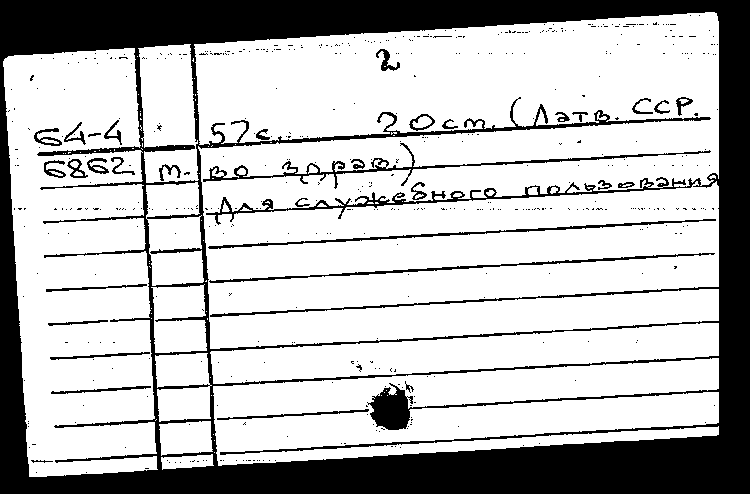 2
64-4 57с. 20см. (Латв. ССР.
6862 м-во здрав.)
Для служебного пользования